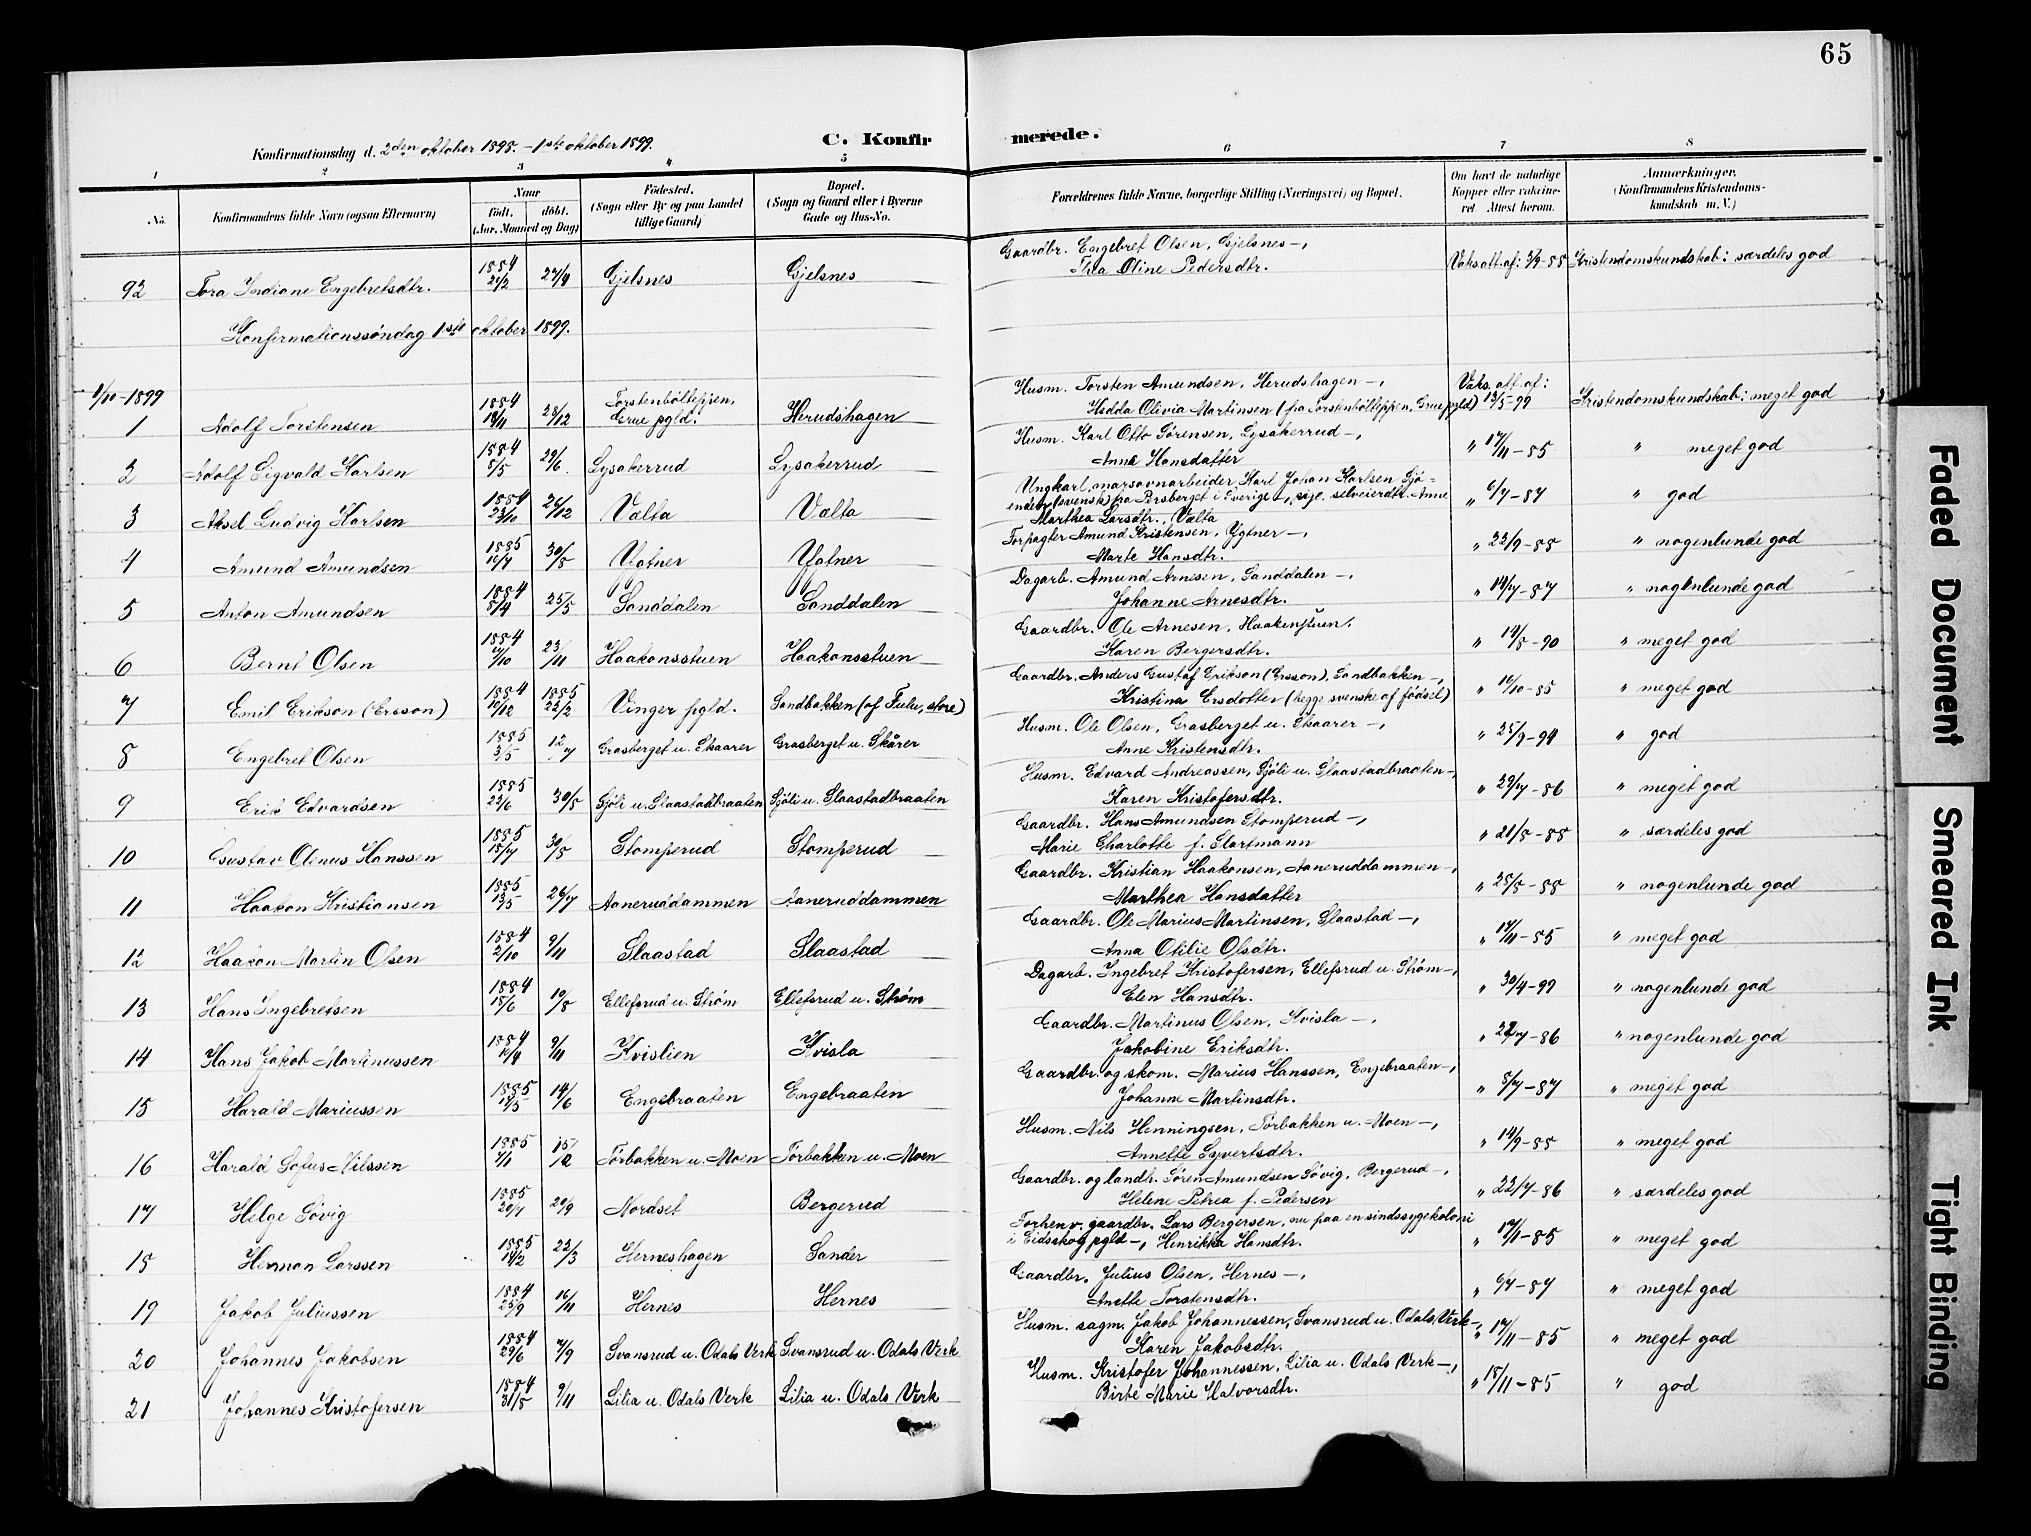 65
Konfirmationsdag d. 2den oktober 1898. - 1ste oktober 1899.
C. Konfir merede.
1 2 3 4 5 6 7 8
No. Konfirmandens fulde Navn (ogsaa Efternavn) Naar født. døbt. (Aar, Maaned og Dag) Fødested. (Sogn eller By og paa Landet tillige Gaard) Bopæl. (Sogn og Gaard eller i Byerne Gade og Hus-No. Forældrenes fulde Navne, borgerlige Stilling (Næringsvei) og Bopæl. Om havt de naturlige Kopper eller vaccineret. Attest herom. Anmærkninger. (Konfirmandens Kristendomskundskab m. V.)
Gaardbr. Engebret Olsen, Gjelsnes -,
92 Tora Indiane Engebretsdtr. 1884 Gjelsnes Gjelsnes Thea Oline Pedersdtr. Vaks. att. af: 3/9-85 Kristendomskundskab: særdeles god
Konfirmationssøndag 1ste oktober 1899.
1/10-1899
Husm. Torsten Amundsen, Herudshagen -,
1 Adolf Torstensen 1884 28/12 Torstenbølteppen, Grue pgld. Herudshagen Hedda Olivia Martinsen (fra Torstenbølteppen, Grue pgld) Vaks. att. af: 13/5-99 Kristendomskundskab: meget god
Husm. Karl Otto Sørensen, Lysakerrud -,
2 Adolf Sigvald Karlsen 1884 8/5 29/6 Lysakerrud Lysakerrud Anna Hansdatter " 17/11-85 " meget god
Ungkarl, marsovnarbeider Karl Johan Karlsen
3 Aksel Ludvig Karlsen 1884 23/10 26/12 Valta Valta (svensk) fra Persberget i Sverige -, pige, selveierdtr. Anne Marthea Larsdtr., Valta " 6/7-87 " god
Forpagter Amund Kristensen, Ygtner -,
4 Amund Amundsen 1885 30/8 Marte Hansdtr. " 22/9-88 " nogenlunde god
Dagarb. Amund Arnesen, Sanddalen -,
5 Anton Amundsen 1884 8/4 25/5 Sanddalen Sanddalen Johanne Arnesdtr. " 14/7-87 " nogenlunde god
Gaardbr. Ole Arnesen, Haakenstuen.
6 Bernt Olsen 1884 23/11 Haakonsstuen Haakonsstuen Karen Bergersdtr. " 14/8-90 " meget god
Gaardbr. Anders Gustaf Erikson (Ersson), Sandbakken -,
7 Emil Erikson (Ersson) 1884 10/12 1885 22/2 Vinger pgld. Sandbakken (af Fulu, store) Kristina Ersdotter (begge svenske af fødsel) " 16/10-85 " meget god
Husm. Ole Olsen, Grasberget u. Skaarer -,
8 Engebret Olsen 1885 3/5 12/7 Grasberget u. Skaarer Grasberget u. Skårer Anne Kristensdtr. " 25/9-94 " god
Husm. Edvard Andreassen, Sjøli u. Slaastadbraaten -,
9 Erik Edvardsen 1885 22/6 30/8 Sjøli u. Slaastadbraaten Sjøli u. Slaastadbraaten Karen Kristofersdtr. " 29/7-86 " meget god
Gaardbr. Hans Amundsen Stomperud -,
10 Gustav Olenus Hanssen 1885 15/7 30/8 Stomperud Stomperud Marie Charlotte f. Slortmann " 21/8-88 " særdeles god
Gaardbr. Kristian Haakonsen, Aaneruddammen -,
11 Haakon Kristiansen 1885 13/5 26/7 Aaneruddammen Aaneruddammen Marthea Hansdatter " 25/8-88 " nogenlunde god
Gaardbr. Ole Marius Martinsen, Slaastad -,
12 Haakon Martin Olsen 1884 2/10 9/11 Slaastad Slaastad Anna Otilie Olsdtr. " 17/11-85 " meget god
Dagarb. Ingebret Kristofersen, Ellefsrud u. Strøm -,
13 Hans Ingebretsen 1884 18/6 10/8 Ellefsrud u. Strøm Ellefsrud u. Strøm Elen Hansdtr. " 30/4-99 " nogenlunde god
Gaardbr. Martinus Olsen, Kvisla -,
14 Hans Jakob Martinussen 1884 9/11 Kvislien Kvisla Jakobine Eriksdtr. " 22/7-86 " nogenlunde god
Gaardbr. og skom. Marius Hanssen, Engebraaten -,
15 Harald Mariussen 1885 14/6 Engebraaten Engebraaten Johanne Martinsdtr. " 5/7-87 " meget god
Husm. Nils Henningsen, Tørbakken u. Moen -,
16 Harald Sofus Nilssen 1885 Tørbakken u. Moen Tørbakken u. Moen Annette Syvertsdtr. " 14/9-85 " meget god
Gaardbr. og landh. Søren Amundsen Søvig, Bergerud -,
17 Helge Søvig 1885 20/7 20/9 Nordset Bergerud Helene Petrea f. Pedersen " 22/7-86 " særdeles god
Forhenv. gaardbr. Lars Bergersen, nu paa en sindssygekoloni
18 Herman Larssen 1885 14/2 22/3 Herneshagen Sander i Eidsskog pgld -, Henrikka Hansdtr. " 17/11-85 " meget god
Gaardbr. Julius Olsen, Hernes -,
19 Jakob Juliussen 1884 25/9 16/11 Hernes Hernes Anette Torstensdtr. " 6/7-87 " meget god
Husm. sagm. Jakob Johannessen, Svansrud u. Odals Verk -,
20 Johannes Jakobsen 1884 29/6 7/9 Svansrud u. Odals Verk Svansrud u. Odals Verk Karen Jakobsdtr. " 17/11-85 " meget god
Husm. Kristofer Johannessen, Lilia u. Odals Verk -,
21 Johannes Kristofersen 1884 31/8 9/11 Lilia u. Odals Verk Lilia u. Odals Verk Birte Marie Halvorsdtr. " 18/11-85 " god
Faded Document
Smeared Ink
Tight Binding